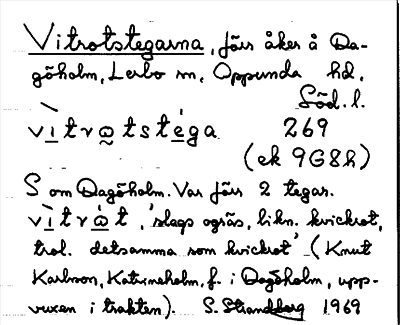 Vitrotstegarna, förr åker å Da-
göholm, Lerbo sn, Oppunda hd,
Söd. l.
vìtrωtstéga 269
(ek 9G8h)
S om Dagöholm. Var förr 2 tegar.
vìtrὼt, 'slags ogräs, likn. kvickrot,
trol. detsamma som kvickrot' (Knut
Karlsson, Katrineholm, f. i Dagöholm, upp-
vuxen i trakten). S. Strandberg 1969